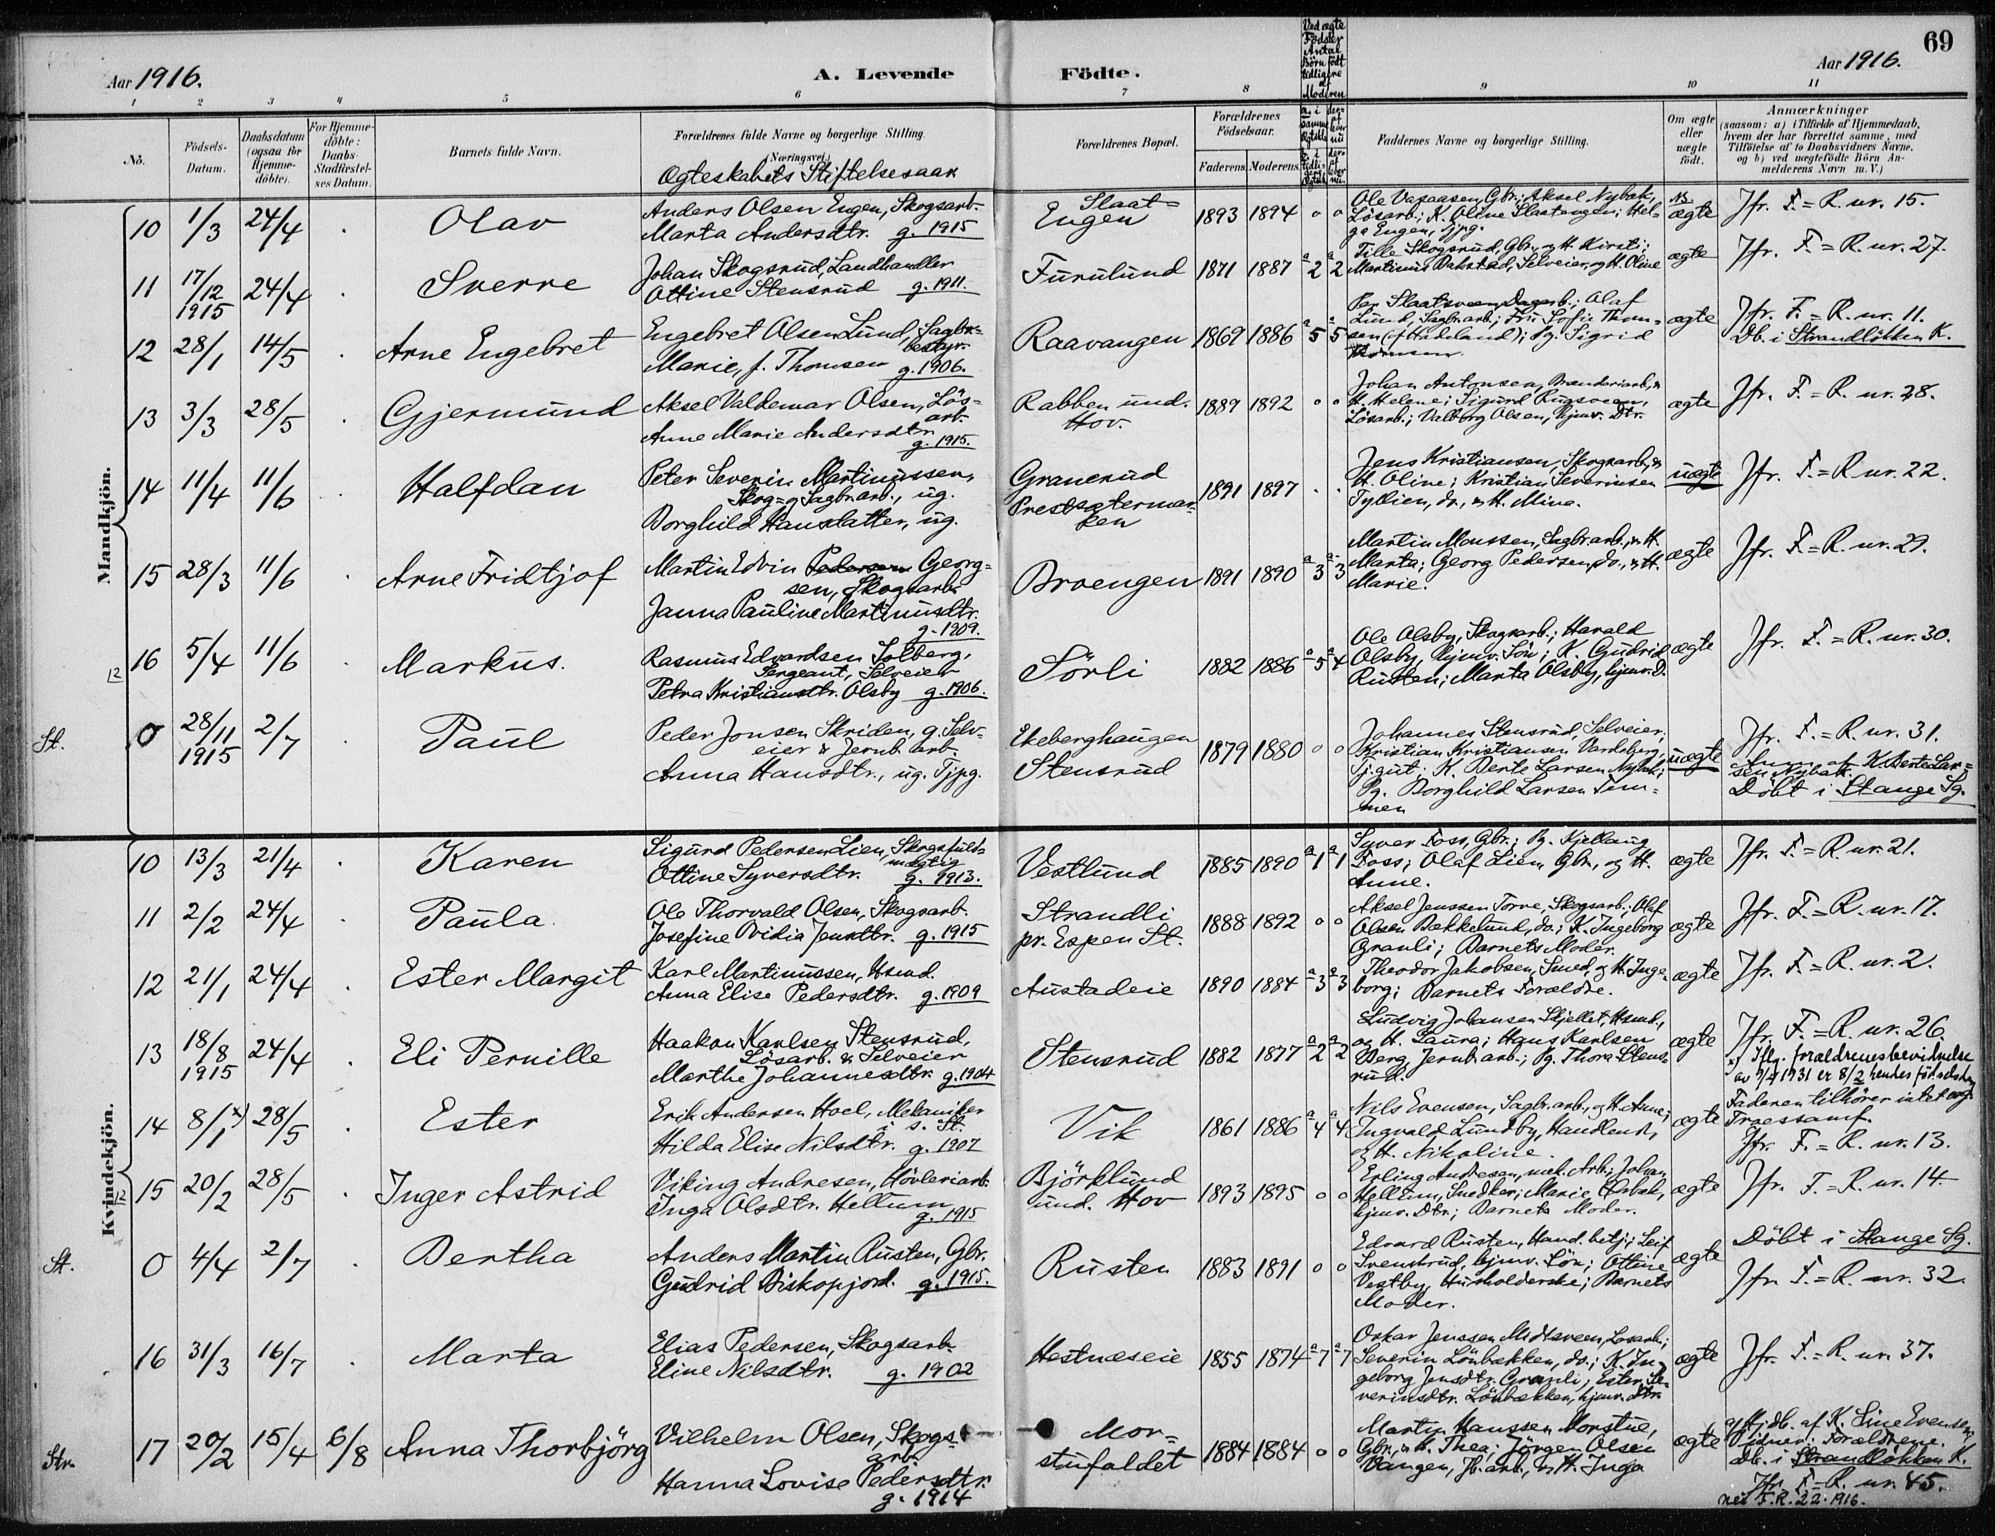 69
Aar 1916.
A. Levende
Födte.
Aar 1916.
Ved ægte Födsler Antal Börn født tidligere af Moderen
1 2 3 4 5 6 7 8 9 10 11
No.
Födsels-Datum.
Daabsdatum (ogsaa for Hjemme-döbte).
For Hjemme-döbte: Daabs-Stadfæstel-ses Datum.
Barnets fulde Navn.
Forældrenes fulde Navne og borgerlige Stilling.
(Næringsvei)
Ægteskabets Stiftelsesaar
Forældrenes Bopæl.
Forældrenes Födselsaar.
Faderens. Moderens.
Faddernes Navne og borgerlige Stilling.
Om ægte eller uægte födt.
Anmærkninger
(saasom: a) i Tilfælde af Hjemmedaab, hvem der har forrettet samme, med Tilföielse af to Daabsvidners Navne, og b) ved uægtefödte Börn An-melderens Navn m. V.)
Mandkjön.
10 1/3 24/4 Olav
Anders Olsen Engen, Skogsarb.
Marta Andersdtr. g. 1915
Slaat-
Engen 1893 1894 0 0
Ole Vasaasen, Gbr.; Aksel Nybak,
Lösarb.; K. Oline Slaatengen; Hel-
ga Engen, Tjpg.
ægte Jfr. F.=R. nr. 15.
11 17/12 1915 24/4 Sverre
Johan Skogsrud, Landhandler
Ottine Stensrud g. 1911.
Furulund 1871 1887 a2 a2
Tille Skogsrud, Gbr., & H. Kirsti;
Martinus Bakstad, Selveier, og H. Oline
ægte Jfr. F.=R. nr. 27.
12 28/1 14/5 Arne Engebret
Engebret Olsen Lund, Sagbr.=
bestyr.
Marie, f. Thomsen g. 1906.
Raavangen 1869 1886 a5 a5
Per Slaatsveen, Dagarb.; Olaf
Lund, Sagbr.arb.; Fru Sofie Thom-
sen (f. Hadeland); Pg. Sigrid
ægte Jfr. F.=R. nr. 11.
Db. i Strandlökken K.
13 3/3 28/5 Gjermund
Aksel Valdemar Olsen, Lös=
arb.
Anne Marie Andersdtr.
g. 1915.
Rabben und.
Hov. 1889 1892 0 0
Johan Antonsen, Brænderiarb., &
H. Helene; Sigurd Rugsveen,
Lösarb.; Valborg Olsen, hjmv. Dtr.
ægte Jfr. F.=R. nr. 28.
14 11/4 11/6 Halfdan
Peter Severin Martinussen,
Skog= & Sagbr.arb., ug.
Borghild Hanslatter, ug.
Granerud
Prestsætermar-
ken 1891 1897
Jens Kristiansen, Skogsarb., &
H. Oline; Kristian Severinsen
Tyllien, do., & H. Mina.
uægte Jfr. F.=R nr. 22.
15 28/3 11/6 Arne Fridtjof
Martin Edvin Pedersen Georg=
sen, Skogsarb.
Janna Pauline Martinusdtr.
g. 1909.
Broengen 1891 1890 a3 a3
Martin Monssen, Sagbr.arb., & H.
Marta; Georg Pedersen, do., & H.
Marie.
ægte Jfr. F.=R. nr. 29.
12
16 5/4 11/6 Markus.
Rasmus Edvardsen Solberg,
Sergeant, Selveier
Petra Kristiansdtr. Olsby g. 1906.
Sörli 1882 1886 a5 a4
Ole Olsby, Skogsarb.; Harald
Olsby, hjmv. Sön; K. Gudrid
Rusten; Marta Olsby, hjmv. D.
ægte Jfr. F.=R. nr. 30.
St. 0 28/11 1915 2/7 Paul
Peder Jonsen Skriden, g. Selv-
eier & Jernb.arb.
Anna Hansdtr., ug. Tjpg.
Ekeberghaugen
Stensrud 1879 1880 0 0
Johannes Stensrud, Selveier;
Kristian Kristiansen Vardeberg,
Tj.gut; K. Berte Larsen Nybak;
Pg. Borghild Larsen
uægte Jfr. F.=R. nr. 31.
Anm. af K. Berte Lar=
sen Nybak.
Döbt i Stange Sg.
Kvindekjön.
10 13/3 21/4 Karen
Sigurd Pedersen Lien, Skogsfuld=
mægtig
Ottine Syversdtr. g. 1913.
Vestlund 1885 1890 a1 a1
Syver Foss, Gbr.; Pg. Kjellaug
Foss; Olaf Lien, Gbr., og H.
Anne.
ægte Jfr. F.=R. nr. 21.
11 2/2 24/4 Paula
Ole Thorvald Olsen, Skogsarb.
Josefine Ovidia Jensdtr. g. 1915
Strandli
pr. Espen St. 1888 1892 0 0
Aksel Jenssen Torve, Skogsarb.; Olaf
Olsen Bækkelund, do.; K. Ingeborg
Granli; Barnets Moder.
ægte Jfr. F.=R. nr. 17.
12 21/1 24/4 Ester Margit
Karl Martinussen, Hsmd.
Anna Elise Pedersdtr. g. 1909
Austadeie 1890 1884 a3 a3
Theodor Jakobsen, Smed, og H. Inge-
borg; Barnets Forældre.
ægte Jfr. F.=R. nr. 2.
13 18/8 1915 24/4 Eli Pernille
Haakon Karlsen Stensrud,
Lösarb. & Selveier
Marthe Johannesdtr. g. 1904
Stensrud 1882 1877 a2 a2
Ludvig Johansen Skjellet, Hsmd.,
og H. Laura; Hans Karlsen
Berg, Jernb.arb.; Pg. Thora Stens-
rud.
ægte Jfr. F.=R. nr. 26.
x) Iflg. forældrenes bevidnelse
av 9/4 1931 er 8/2 hendes fødselsdag
14 8/1 x) 28/5 Ester
Erik Andersen Hoel, Mekaniker
i s. St.
Hilda Elise Nilsdtr. g. 1907
Vik 1861 1886 a4 a4
Nils Evensen, Sagbr.arb., og H. Anne;
Ingvald Lundby, Handlend.,
& H. Nikoline.
ægte Faderen tilhörer intet
Troessamf.
Jfr. F.=R. nr. 13.
12
15 20/2 28/5 Inger Astrid
Viking Andresen, Hövleriarb.
Inga Olsdtr. Hellum
g. 1915
Björklund
und. Hov 1893 1895 0 0
Erling Andresen, mek. Arb.; Johan
Hellum, Snedker; Marie Ørbak,
hjmv. Dtr.; Barnets Moder.
ægte Jfr. F.=R. nr. 14.
St. 0 4/4 2/7 Bertha
Anders Martin Rusten, Gbr.
Gudrid Biskopjord. g. 1915.
Rusten 1883 1891 0 0
Edvard Rusten, Hand.betj.; Leif
Svenstrud, hjmv. Sön; Ottine
Vestby, Husholderske; Barnets
Moder.
ægte Döbt i Stange Sg.
Jfr. F.=R. nr. 32.
16 31/3 16/7 Marta
Elias Pedersen, Skogsarb.
Eline Nilsdtr. g. 1902
Hestnæseie 1855 1874 a7 a7
Oskar Jenssen Midtsveen, Lösarb.;
Severin Lönbækken, do.; K. In-
geborg Jensdtr. Granli; Ester Se-
verinsdtr. Lönbækken, hjmv. Dtr.
ægte Jfr. F.=R. nr. 37.
Str. 17 20/2 15/4 6/8 Anna Thorbjörg
Vilhelm Olsen, Skogs-
arb.
Hanna Lovise Pedersdtr.
g. 1914
Mor=
stufaldet 1884 1884 0 0
Martin Hanssen Morstue,
Gbr., & H. Thea; Jörgen Olsen
Vangen, Jb.arb., & H. Inga
ægte a) Hjdb. af K. Line Evensen,
Vidner: Forældrene.
db. i Strandlökken K.
Jfr. F.=R. nr. 45.
nei F.R. 22. 1916.